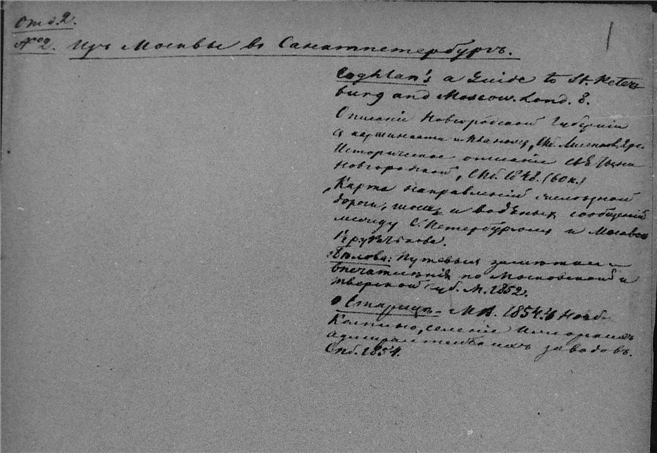 Отд. 2.
№ 2. Изъ Москвы въ Санктпетербургъ.
1
Coghlan's a Guide to St. Peters
burg and Moscow. Lond. 8.
Описаніе Новгородской Губерніи
съ картинками
Историческое описаніе
Новгородской, Спб. (60 к.)
Карта направленій желѣзной
дороги, шоссе и водяныхъ сообщеній
между С. Петербургомъ и Москвою
Бѣлова: Путевыя замѣтки и
впечатлѣнія по Московской и
Тверской губ. М. 1852.
о Старицѣ - М. В. 1854.
Колпино, селеніе Ижорскихъ
адмиралтейскихъ заводовъ.
Спб. 1854.